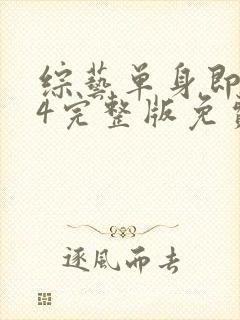 综藝单身即
4完整版免費
逐風而去